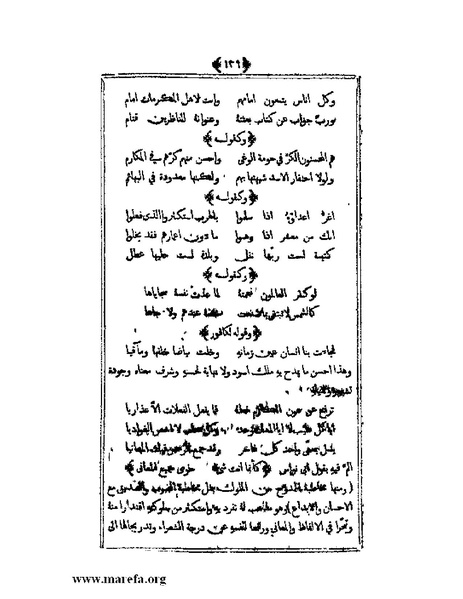 ﴿١٣٩﴾
وكل اناس يتبعون امامهم وانت لاهل المكرمات امام
ورب جواب عن كتاب بعثته وعنوانه للناظرين قتام
﴿وكقوله﴾
هم المحسنون الكر في حومة الوغى واحسن منهم كرهم في المكارم
ولولا احتقار الاسد شبهتها بهم ولكنها معدودة في البهائم
﴿وكقوله﴾
اعدائه اذا سلموا بالهرب استكثروا الذي فعلوا
انك من معشر اذا وهبوا ما دون اعمارهم فقد بخلوا
كتيبة لست ربها نفل وبلدة لست حليها عطل
﴿وكقوله﴾
لو كفر العالمون نعمته لما عدت نفسه سجاياها
كالشمس لا تبتغي بما صنعت عندهم ولا جاها
﴿وقوله لكافور﴾
فجاءت بنا انسان عين زمانه وخلت بياضا خلفها ومآقيا
وهذا احسن ما يمدح به ملك اسود ولا نهاية لحسنه وشرف معناه وجودة
ترفع عن عون المكارم فما يفعل الفعلات الا عذاريا
يدل بمعنى واحد كل فاخر وقد جمع الرحمن فيك المعانيا
الم فيه بقول ابي نواس ﴿كأنما انت شيء حوى جميع المعاني﴾
(ومنها مخاطبة الممدوح من الملوك بمثل مخاطبة المحبوب والصديق مع
الاحسان والابداع) وهو مذهب له تفرد به واستكثر من سلوكه اقتدارا منه
وتبحرا في الالفاظ والمعاني ورفعا لنفسه عن درجة الشعراء وتدريجا لها الى
www.marefa.org